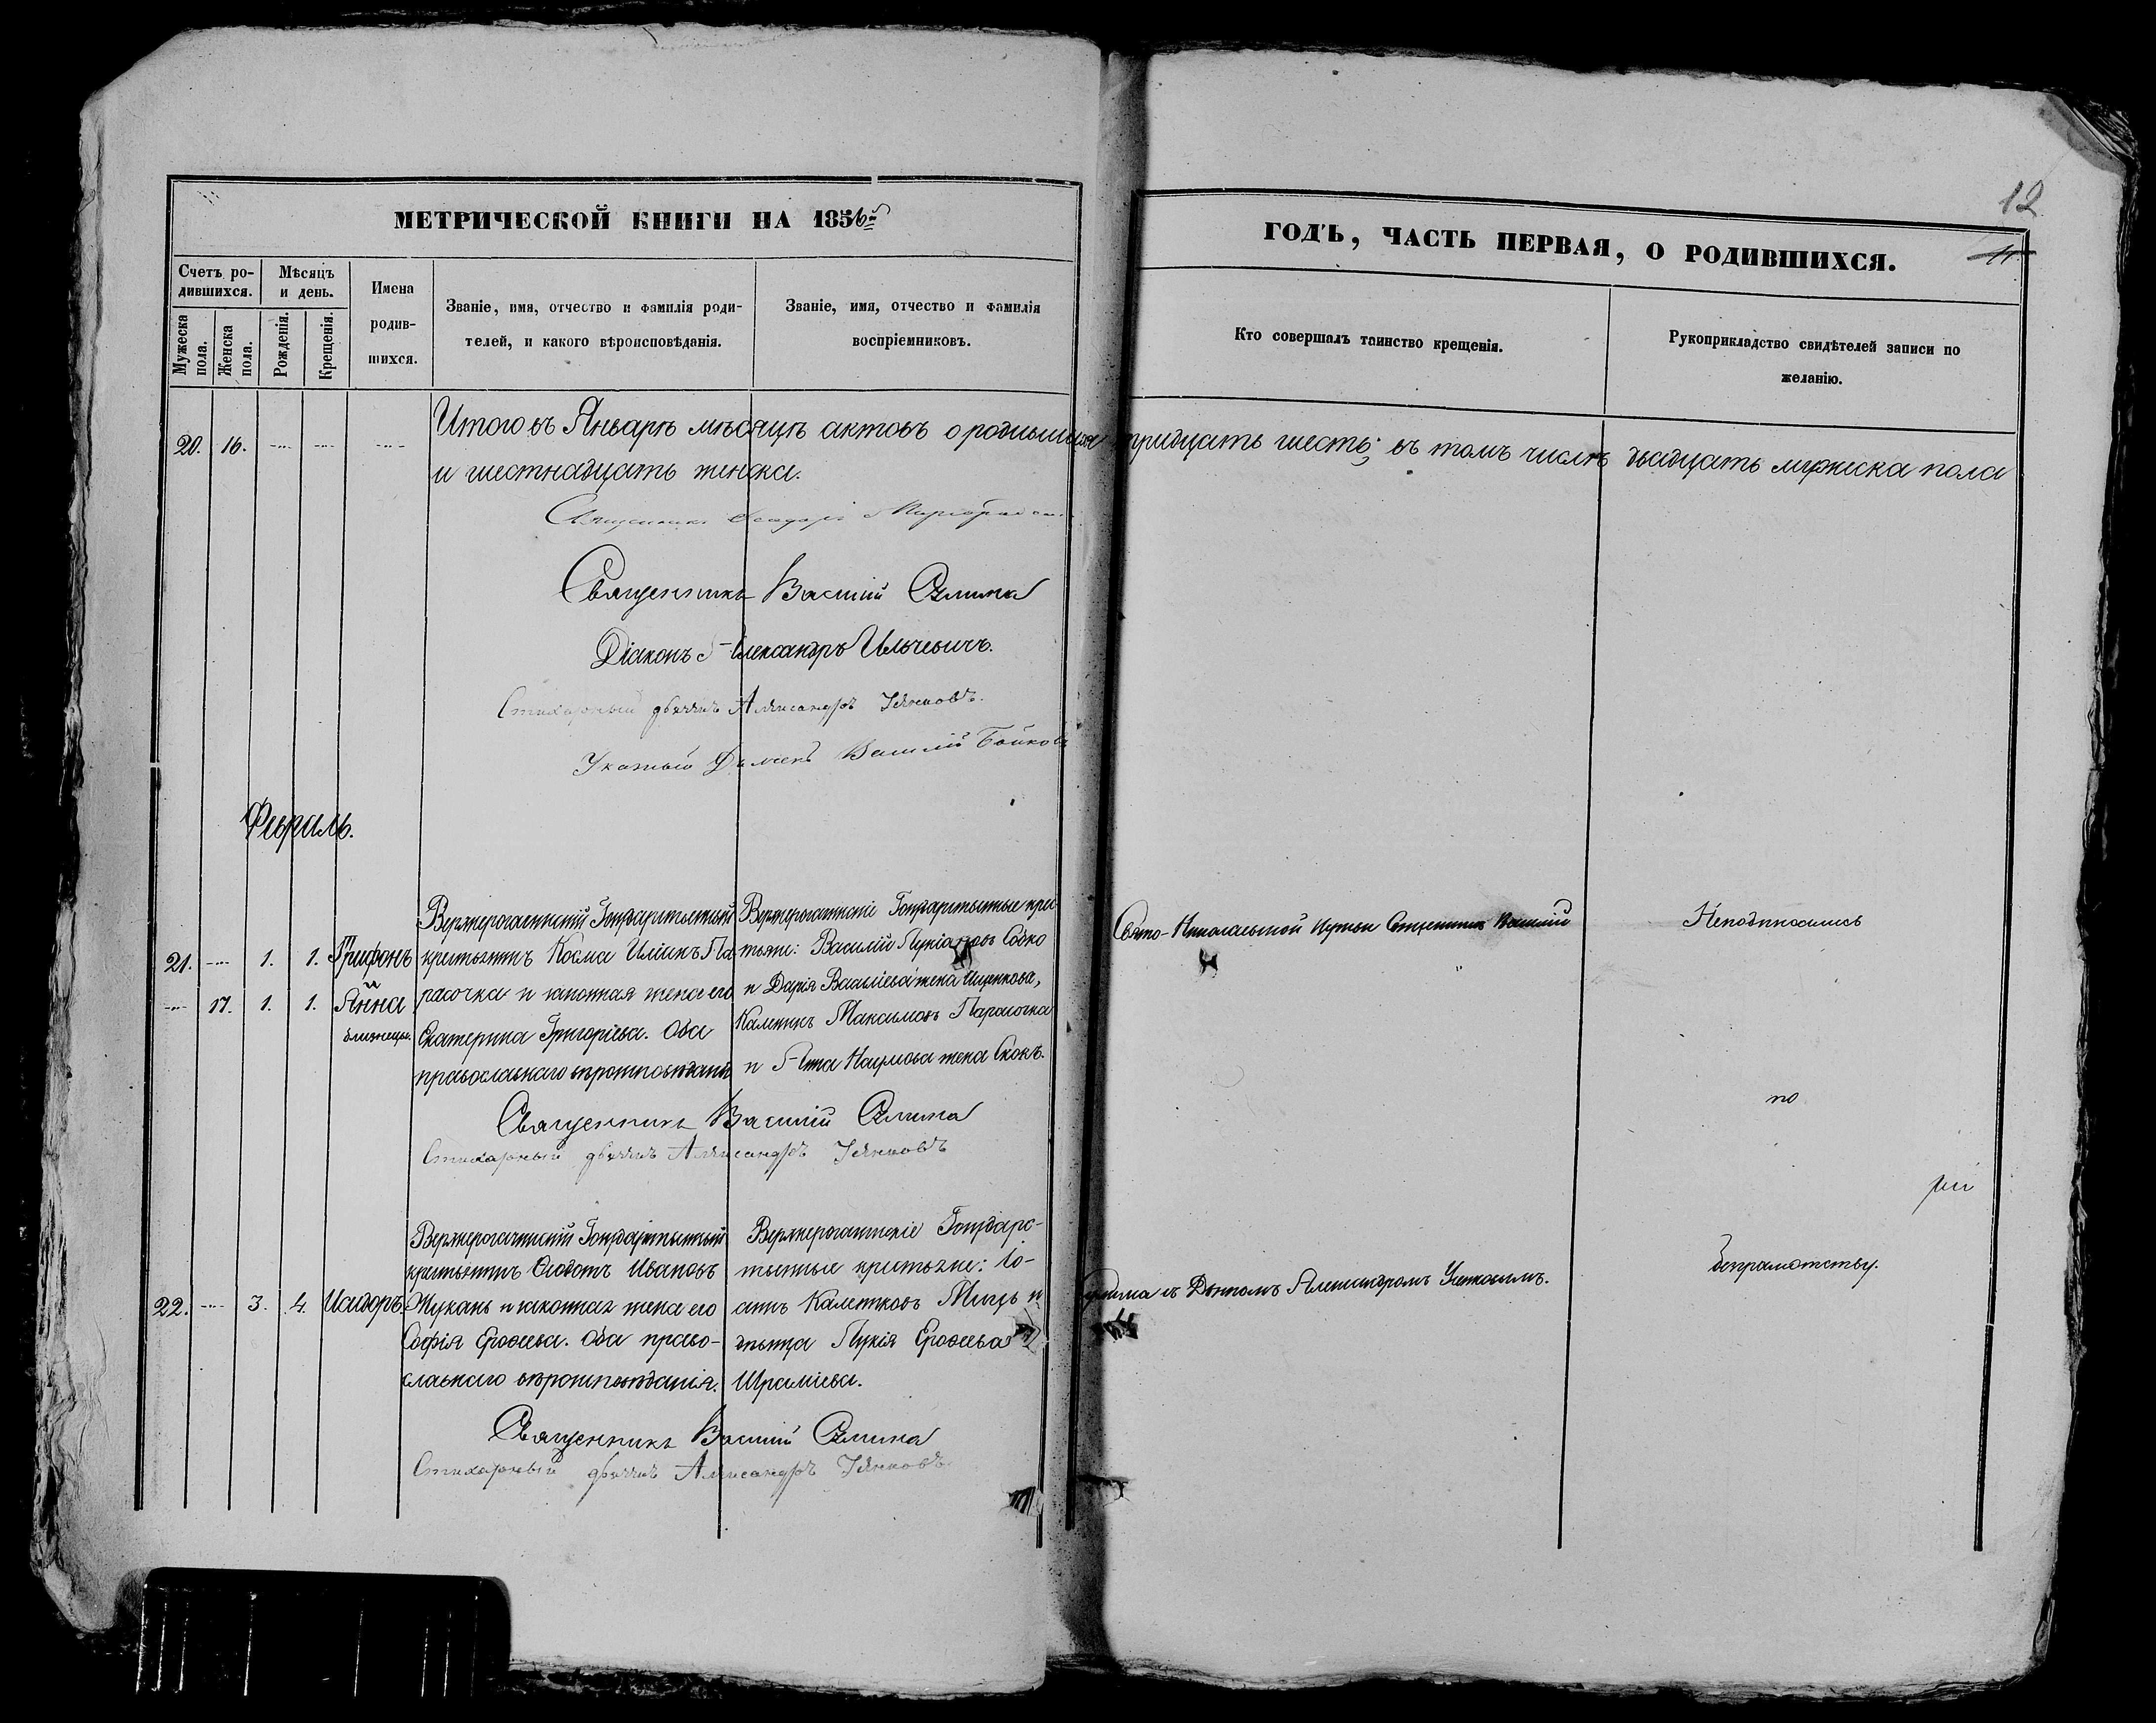 12
МЕТРИЧЕСКОЙ КНИГИ НА 1856й
ГОДЪ, ЧАСТЬ ПЕРВАЯ, О РОДИВШИХСЯ.
11
Счетъ ро-
дившихся.
Мѣсяцъ
и день.
Мужеска
пола.
Женска
пола.
Рожденія.
Крещенія.
Имена
родив-
шихся.
Званіе, имя, отчество и фамилія роди-
телей, и какого вѣроисповѣданія.
Званіе, имя, отчество и фамилія
воспріемниковъ.
Кто совершалъ таинство крещенія.
Рукоприкладство свидѣтелей записи по
желанію.
20. 16.
Итого въ Январѣ мѣсяцѣ актовъ о родившихся тридцать шесть; въ томъ числѣ двадцать мужеска пола
и шестнадцать женска.
Священникъ
Священникъ Василій
Діаконъ Александръ Ильчевичъ.
Стихарный дьячекъ Александръ
Указный Василій Бойковъ
Февраль.
21. 1. 1. Трифонъ
17. 1. 1. Анна
близнецы.
Верхнерогачинскій Государственный
крестьянинъ Косма Па-
расочка и законная жена его
Екатерина Григоріева. Оба
православнаго вѣроисповѣданія
Верхнерогачинскіе Государственные крес-
тьяне: Василій Собко
и Дарія Василіева жена
Максимовъ Парасочка
и Анна Наумова жена Скокъ.
Свято-Николаевской Церкви Священникъ Василій
Неподписались
по
Священникъ Василій
Стихарный дьячекъ Александръ
22. 3. 4. Исидоръ.
Верхнерогачинскій Государственный
крестьянинъ Ѳеодотъ Ивановъ
Жукань и законная жена его
Софія Ерофеева. Оба право-
славнаго вѣроисповѣданія.
Верхнерогачинскіе Государс-
твенные крестьяне: Іо-
аннъ и
дѣвица Лукія Ерофеева
съ Дьячкомъ Александромъ
безграмотству.
Священникъ Василій
Стихарный дьячекъ Александръ